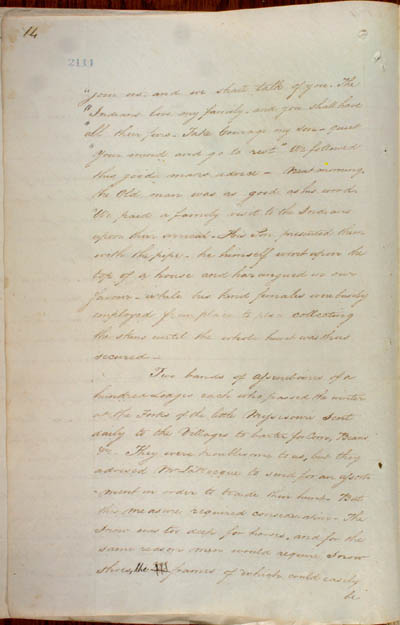 14
2111
"join us and we shall talk of you. The
"Indians love my family and you shall have
"all their furs - Take Courage my Son - quiet
"Your mind and go to rest" We followed
this good mans advice - Next morning
the Old man was as good as his word.
We paid a family visit to the Indians
upon their arrival - His Son presented them
with the pipe - he himself went upon the
top of a house and harangued in our
favour - while his kind females were busily
employed from place to place collecting
the skins until the whole hunt was thus
secured -
Two bands of Assiniboines of a
hundred Lodges each who passed the winter
at the Forks of the little Missisourie Sent
daily to the Villages to barter for Corn, Beans
&c. They were troublesome to us, but they
advised Mr LaRocque to send for an assort
-ment in order to trade their hunts But
this measure required consideration - The
Snow was too deep for horses, and for the
same reason men would require Snow
Shoes, the frames of which could easily
be